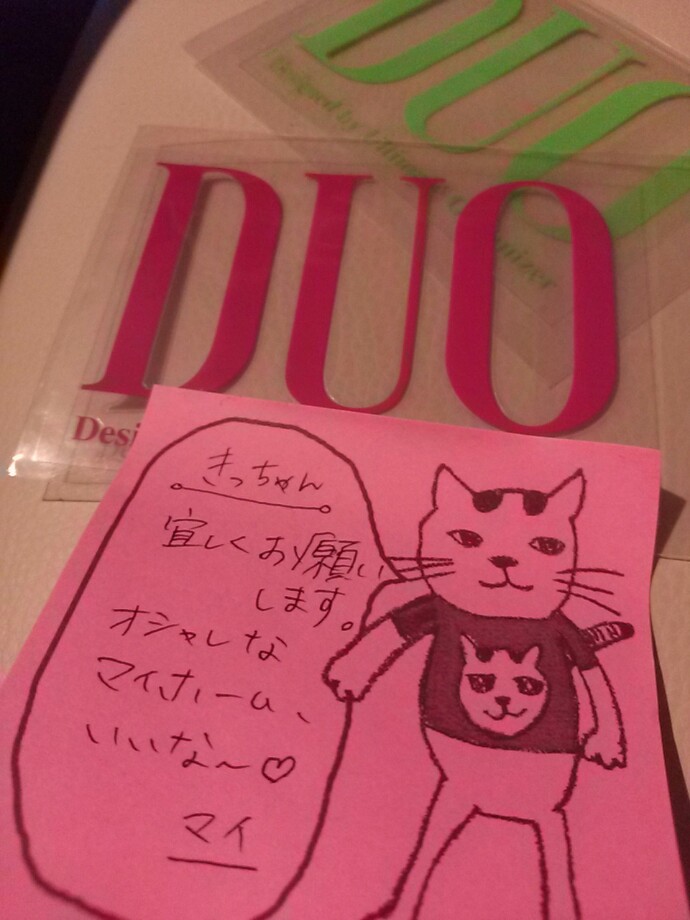 DUO
Designed by
nizer
DUO
Desi
きっちゃん
宜しくお願い
します。
オシャレな
マイホーム、
いいな〜♡
マイ